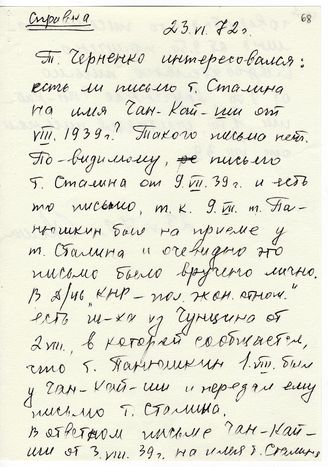 Справка
68
23.VI.72г.
Т. Черненко интересовался:
есть ли письмо т. Сталина
на имя Чан-Кай-ши от
VIII.1939г? Такого письма нет.
По-видимому, письмо
т. Сталина от 9.VII.39г. и есть
то письмо, т.к. 9.VII. т. Па-
нюшкин был на приеме у
т. Сталина и очевидно это
письмо было вручено лично.
В "КНР-пол.экон.отнош."
есть ш-ка из Чунцина от
2.VIII., в которой сообщается,
что т. Панюшкин 1.VIII. был
у Чан-Кай-ши и передал ему
письмо т. Сталина.
В ответном письме Чан-Кай-
ши от 3.VIII.39г. на имя т. Сталина